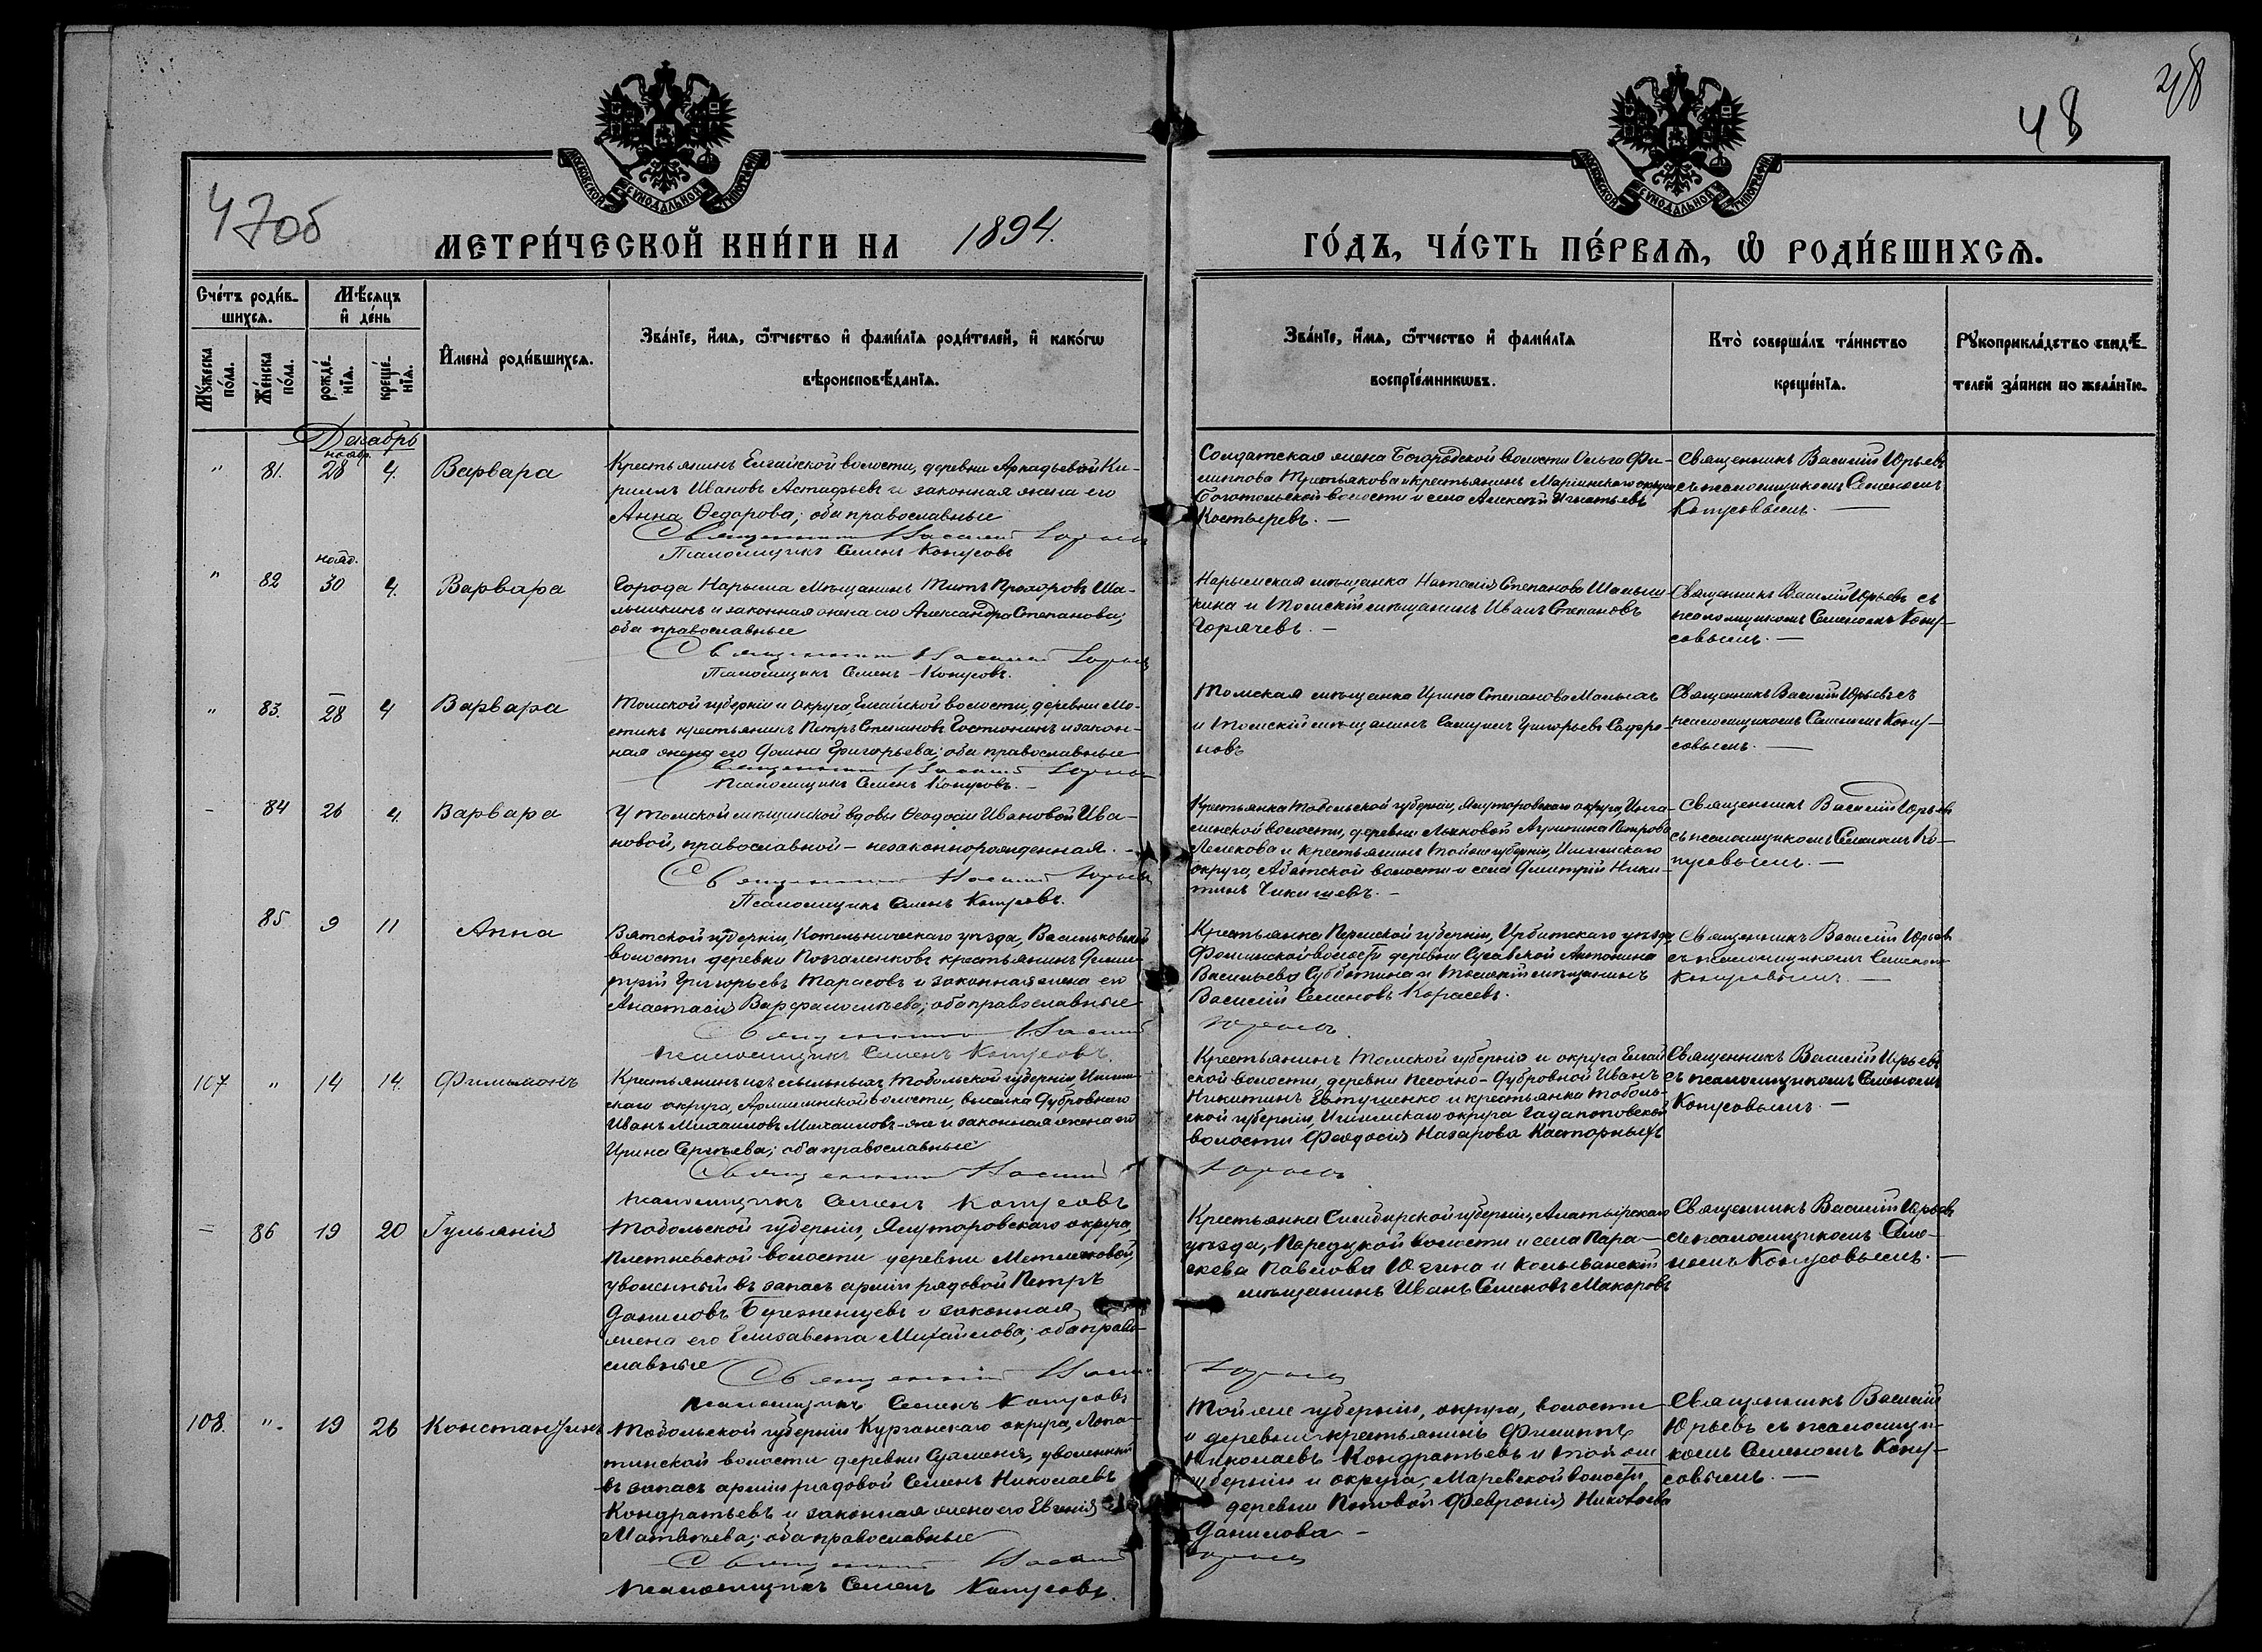 48
48
47об
МОСКОВСКОЙ СѴНОДАЛЬНОЙ ТИПОГРАФІИ
МОСКОВСКОЙ СѴНОДАЛЬНОЙ ТИПОГРАФІИ
МЕТРИ́ЧЕСКОЙ КНИ́ГИ НА 1894.
ГО́ДЪ, ЧА́СТЬ ПЕ́РВАѦ, Ѡ҆ РОДИ́ВШИХСѦ.
Сче́тъ роди́в-
шихсѧ.
Мѣ́сѧцъ
и҆ де́нь
Мꙋ́жеска
по́ла.
Же́нска
по́ла.
рожде́-
нїѧ.
креще́-
нїѧ.
И҆мена̀ роди́вшихсѧ.
Зва́нїе, и҆́мѧ, ѻ҆́тчество и҆ фами́лїѧ роди́телей, и҆ како́гѡ
вѣроисповѣ́данїѧ.
Зва́нїе, и҆́мѧ, ѻ҆́тчество и҆ фами́лїѧ
воспрїе́мникѡвъ.
Кто̀ соверша́лъ та́инство
креще́нїѧ.
Рꙋкоприкла́дство свидѣ́-
телей за́писи по жела́нїю.
Декабрь
" 81. нояб. 28 4. Варвара
Крестьянинъ Елгайской волости, деревни Аркадьевой Ки-
риллъ Ивановъ Астафьевъ и законная жена его
Анна Ѳедорова; оба православные
Священникъ Василій Юрьевъ
Псаломщикъ Семенъ Копусовъ
Солдатская жена Богородской волости Ольга Фи-
липпова Третьякова и крестьянинъ Маріинскаго округа
Боготольской волости и села Алексѣй Игнатьевъ
Костыревъ. —
Священникъ Василій Юрьевъ
съ псаломщикомъ Семеномъ
Копусовымъ. —
" 82 нояб. 30 4. Варвара
Города Нарыма мѣщанинъ Титъ Прохоровъ Ша-
лышкинъ и законная жена его Александра Степанова;
оба православные
Священникъ Василій Юрьевъ
Псаломщикъ Семенъ Копусовъ.
Нарымская мѣщанка Наталія Степанова Шалыш-
кина и Томскій мѣщанинъ Иванъ Степановъ
Горячевъ. —
Священникъ Василій Юрьевъ съ
псаломщикомъ Семеномъ Копу-
совымъ. —
" 83. 28 4 Варвара
Томской губерніи и округа, Елгайской волости, деревни Мо-
стикъ крестьянинъ Петръ Степановъ Гостюнинъ и закон-
ная жена его Домна Григорьева; оба православные
Священникъ Василій Юрьевъ
Псаломщикъ Семенъ Копусовъ. —
Томская мѣщанка Ирина Степанова Малыхъ
и Томскій мѣщанинъ Самуилъ Григорьевъ Сафро-
новъ
Священникъ Василій Юрьевъ съ
псаломщикомъ Семеномъ Копу-
совымъ. —
- 84 26 4. Варвара
У Томской мѣщанской вдовы Ѳеодосіи Ивановой Ива-
новой, православной — незаконнорожденная. —
Священникъ Василій Юрьевъ
Псаломщикъ Семенъ Копусовъ.
Крестьянка Тобольской губерніи, Ялуторовскаго округа,
волости, деревни Лыковой Агрипина Петрова
Лемехова и крестьянинъ той же губерніи, Ишимскаго
округа, Абатской волости и села Димитрій Ники-
тинъ Чикишевъ. —
Священникъ Василій Юрьевъ
съ псаломщикомъ Семеномъ Ко-
пусовымъ. —
85 9 11 Анна
Вятской губерніи, Котельническаго уѣзда, Васильковской
волости деревни крестьянинъ Дими-
трій Григорьевъ Тарасовъ и законная жена его
Анастасія Варфаломѣева; оба православные
Священникъ Василій Юрьевъ.
псаломщикъ Семенъ Копусовъ.
Крестьянка Пермской губерніи, Ирбитскаго уѣзда,
Фоминской волости деревни Антонина
Васильева Субботина и Томскій мѣщанинъ
Василій Семеновъ Карасевъ.
Священникъ Василій Юрьевъ
съ псаломщикомъ Семеномъ
Копусовымъ. —
107. " 14 14. Филимонъ
Крестьянинъ изъ ссыльныхъ Тобольской губерніи, Ишим-
скаго округа, Армизонской волости, выселка Дубровнаго
Иванъ Михаиловъ Михаиловъ-же и законная жена его
Ирина Сергѣева; оба православные
Священникъ Василій Юрьевъ
псаломщикъ Семенъ Копусовъ
Крестьянинъ Томской губерніи и округа Елгай-
ской волости, деревни Песочно-Дубровной Иванъ
Никитинъ Евтушенко и крестьянка Тоболь-
ской губерніи, Ишимскаго округа
волости Феодосія Назарова Касторныхъ
Священникъ Василій Юрьевъ
съ псаломщикомъ Семеномъ
Копусовымъ. —
= 86 19 20 Гульянія
Тобольской губерніи, Ялуторовскаго округа,
Плетневской волости деревни
уволенный въ запасъ арміи рядовой Петръ
Даниловъ Березенцевъ и законная
жена его Елисавета Михайлова; оба право-
славные Священникъ Василій Юрьевъ
псаломщикъ Семенъ Копусовъ
Крестьянка Симбирской губерніи, Алатырскаго
уѣзда, Порецкой волости и села Пара-
скева Павлова Югина и Колыванскій
мѣщанинъ Иванъ Семеновъ Макаровъ
Священникъ Василій Юрьевъ
съ псаломщикомъ Семе-
номъ Копусовымъ. —
108. " 19 26 Константинъ
Тобольской губерніи Курганскаго округа, Лопа-
тинской волости деревни уволенный
въ запасъ арміи рядовой Семенъ Николаевъ
Кондратьевъ и законная жена его Евгенія
Матвѣева; оба православные
Священникъ Василій Юрьевъ
псаломщикъ Семенъ Копусовъ.
Той же губерніи, округа, волости
и деревни крестьянинъ Филиппъ
Николаевъ Кондратьевъ и той же
губерніи и округа, Маревской волости
деревни Поповой Февронія Николаева
Данилова —
Священникъ Василій
Юрьевъ съ псаломщи-
комъ Семеномъ Копу-
совымъ. —